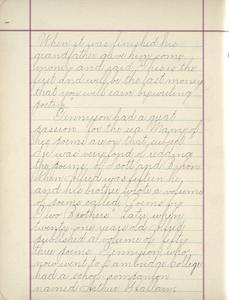 When it was finished his
grandfather gave him some
money and said "This is the
first and will be the last money
that you will earn by writing
poetry."
Tennyson had a great
passion for the sea. Many of
his poems are on that subject.
He was very fond of reading
the poems of Scott and Byron.
When Alfred was fifteen he
and his brother wrote a volume
of poems called "Poems by
Two Brothers." Later, when
twenty one years old, Alfred
published a volume of fifty
three poems. Tennyson, who
now went to Cambridge College
had a school companion
named Arthur Hallam,